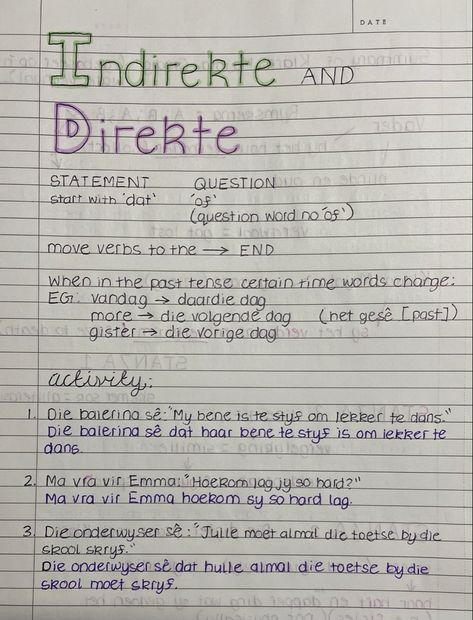 DATE
Indirekte AND
Direkte
STATEMENT QUESTION
start with 'dat' 'of'
(question word no 'of')
move verbs to the → END
When in the past tense certain time words change:
EG: vandag → daardie dag
more → die volgende dag (het gesê [past])
gister → die vorige dag
activity:
1. Die balerina sê: "My bene is te styf om lekker te dans."
Die balerina sê dat haar bene te styf is om lekker te
dans.
2. Ma vra vir Emma: "Hoekom lag jy so hard?"
Ma vra vir Emma hoekom sy so hard lag.
3. Die onderwyser sê: "Julle moet almal die toetse by die
skool skryf."
Die onderwyser sê dat hulle almal die toetse by die
skool moet skryf.